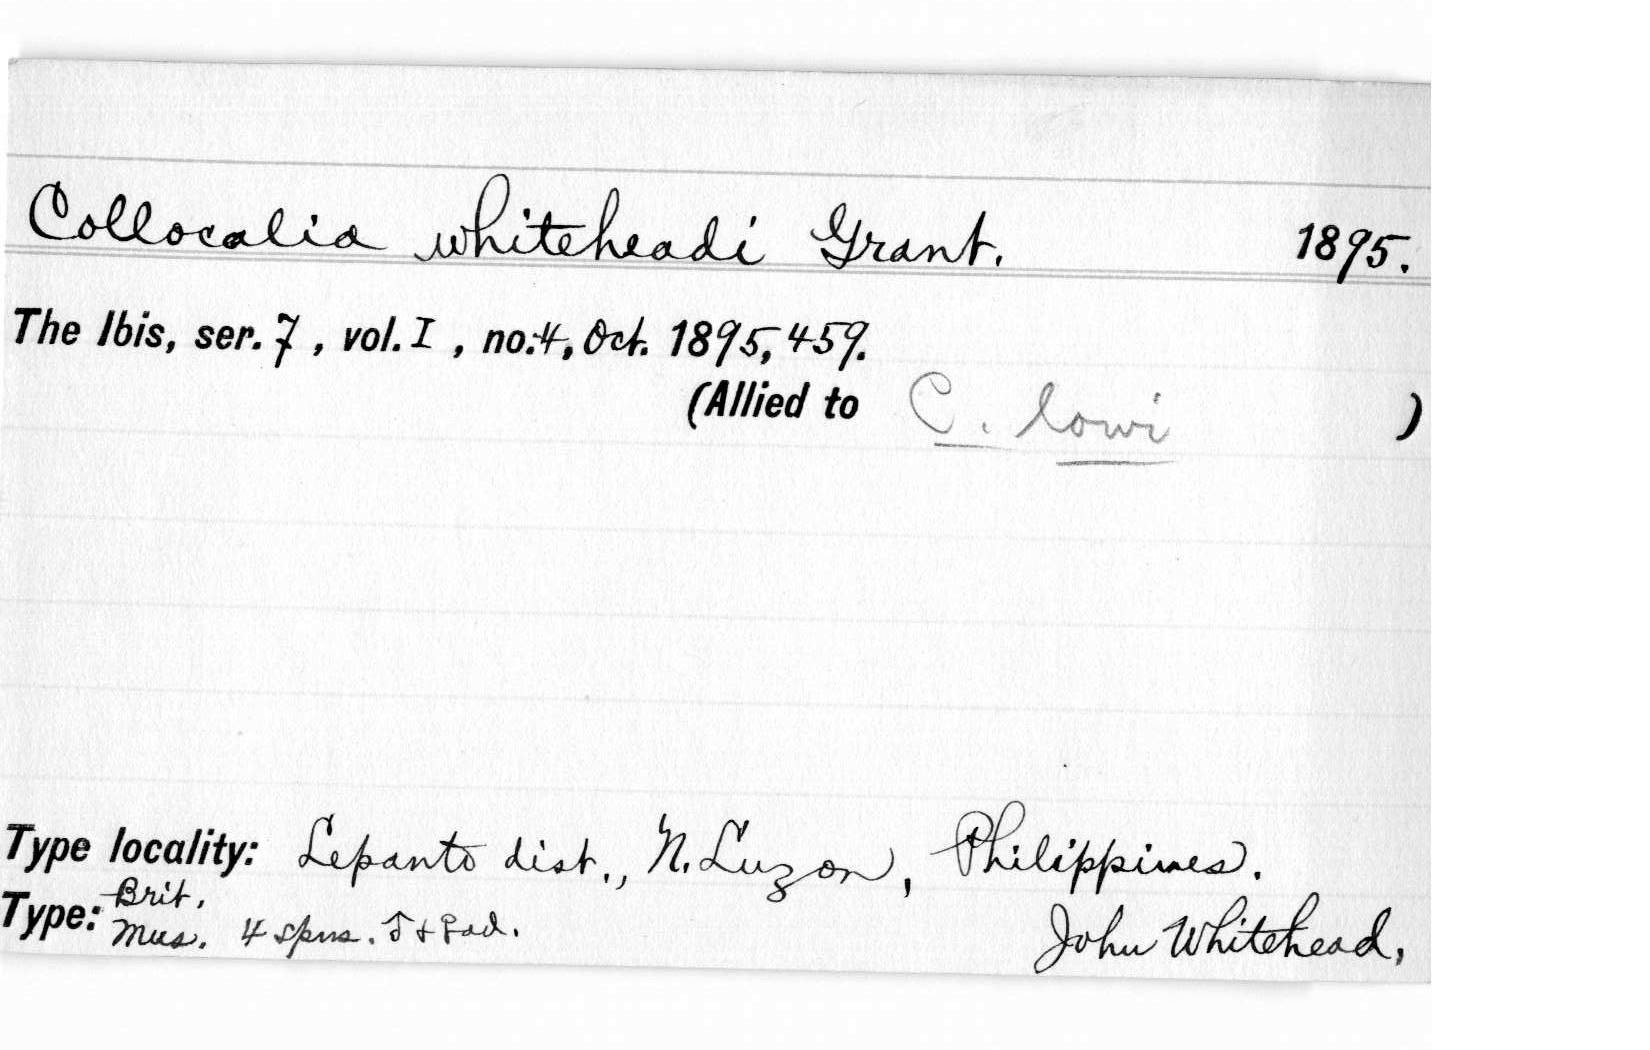 Collocalia whiteheadi Grant. 1895.
The Ibis, ser. 7, vol. I, no. 4, Oct. 1895, 459.
(Allied to C. lowi )
Type locality: Lepanto dist., N. Luzon, Philippines.
Type: Brit. Mus. 4 spms. ♂ + ♀ ad. John Whitehead,